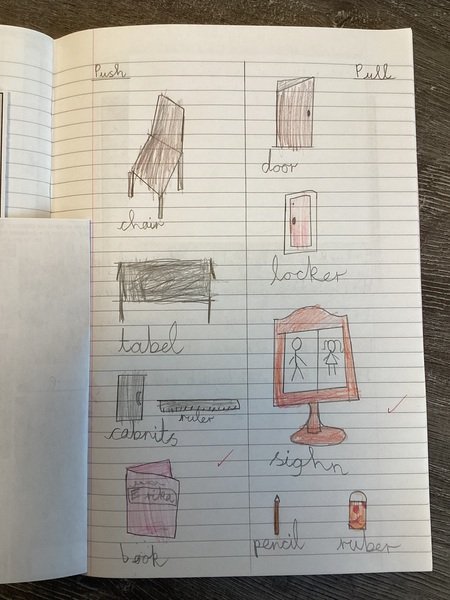 Push
Pull
chair
door
locker
tabel
cabnits
ruler
sighn
Erika
book
pencil
ruber